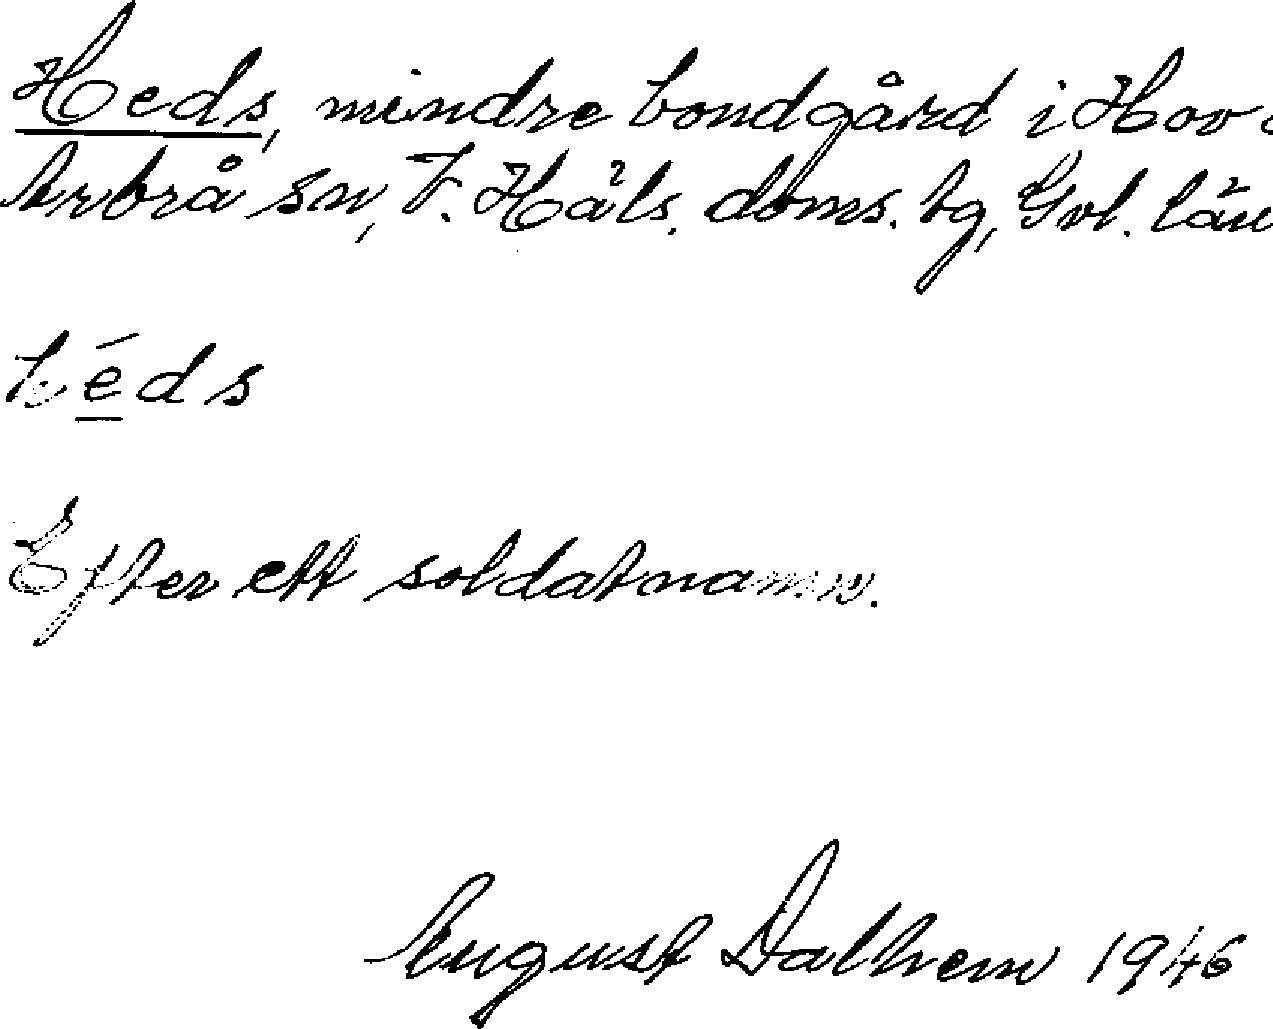 Heds, mindre bondgård i Hov
Arbrå sn, V. Häls. doms. tg, Gvl. län
héds
Efter ett soldatnamn.
August Dalhem 1946